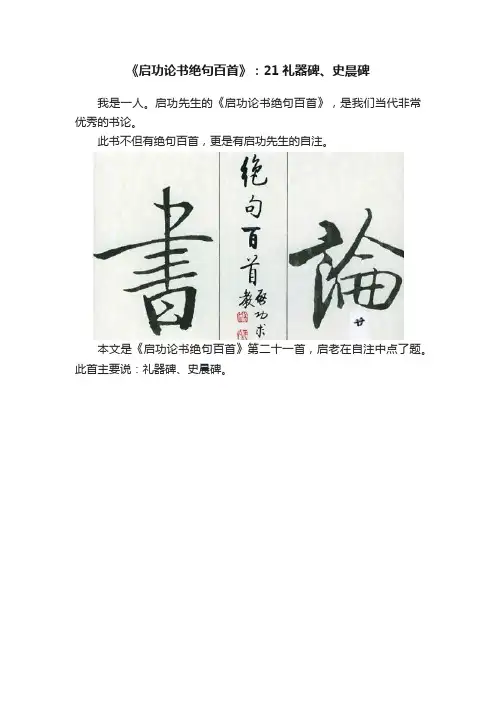 《启功论书绝句百首》：21礼器碑、史晨碑
我是一人。启功先生的《启功论书绝句百首》，是我们当代非常
优秀的书论。
此书不但有绝句百首，更是有启功先生的自注。
論
廿
書
絕句百首
啓功求
教
本文是《启功论书绝句百首》第二十一首，启老在自注中点了题。
此首主要说：礼器碑、史晨碑。